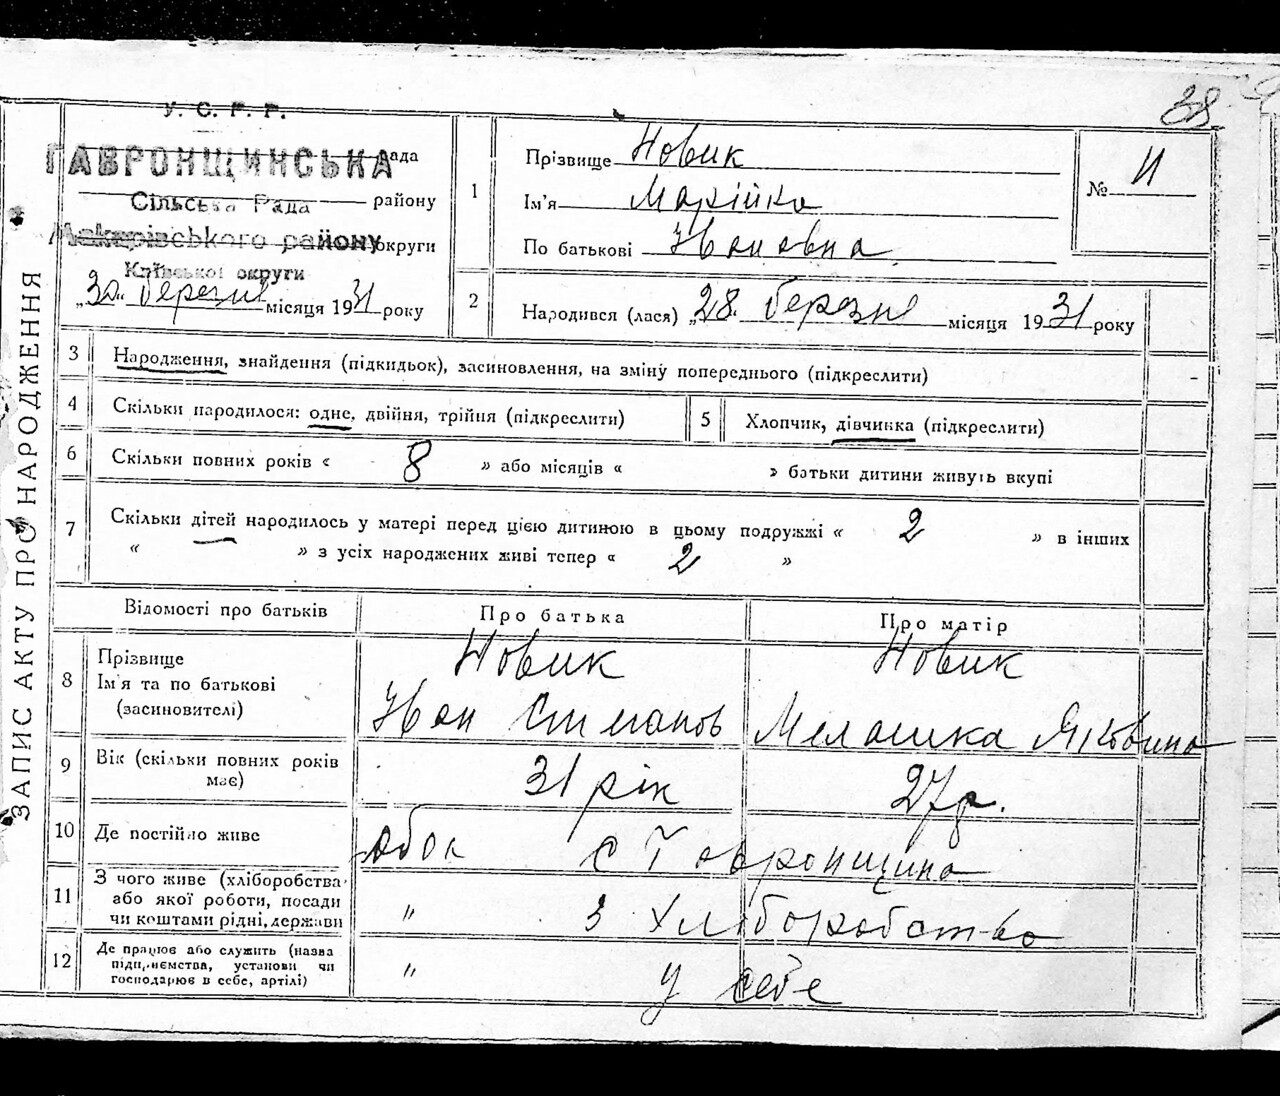 38
У. С. Р. Р.
ГАВРОНЩИНСЬКА рада
Сільська Рада району
Макарівського району округи
Київської округи
„30“ березня місяця 1931 року
1
Прізвище Новик
Ім'я Марійка
По батькові Ивановна
№ 11
2
Народився (лася) „28“ березня місяця 1931 року
ЗАПИС АКТУ ПРО НАРОДЖЕННЯ
3 Народження, знайдення (підкидьок), засиновлення, на зміну попереднього (підкреслити) -
4 Скільки народилося: одне, двійня, трійня (підкреслити) 5 Хлопчик, дівчинка (підкреслити)
6 Скільки повних років « 8 » або місяців « » батьки дитини живуть вкупі
7 Скільки дітей народилось у матері перед цією дитиною в цьому подружжі « 2 » в інших
« » з усіх народжених живі тепер « 2 »
Відомості про батьків Про батька Про матір
8 Прізвище Новик Новик
Ім'я та по батькові
(засиновителі) Иван Степанов Мелашка Яківина
9 Вік (скільки повних років
має) 31 рік 27 р.
10 Де постійно живе обоє с Гавронщина
11 З чого живе (хліборобства
або якої роботи, посади
чи коштами рідні, держави " З Хліборобство
12 Де працює або служить (назва
підприємства, установи чи
господарює в себе, артілі) " у себе